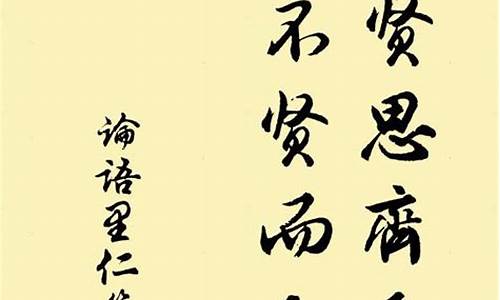 贤思齐
不贤而
论语里仁